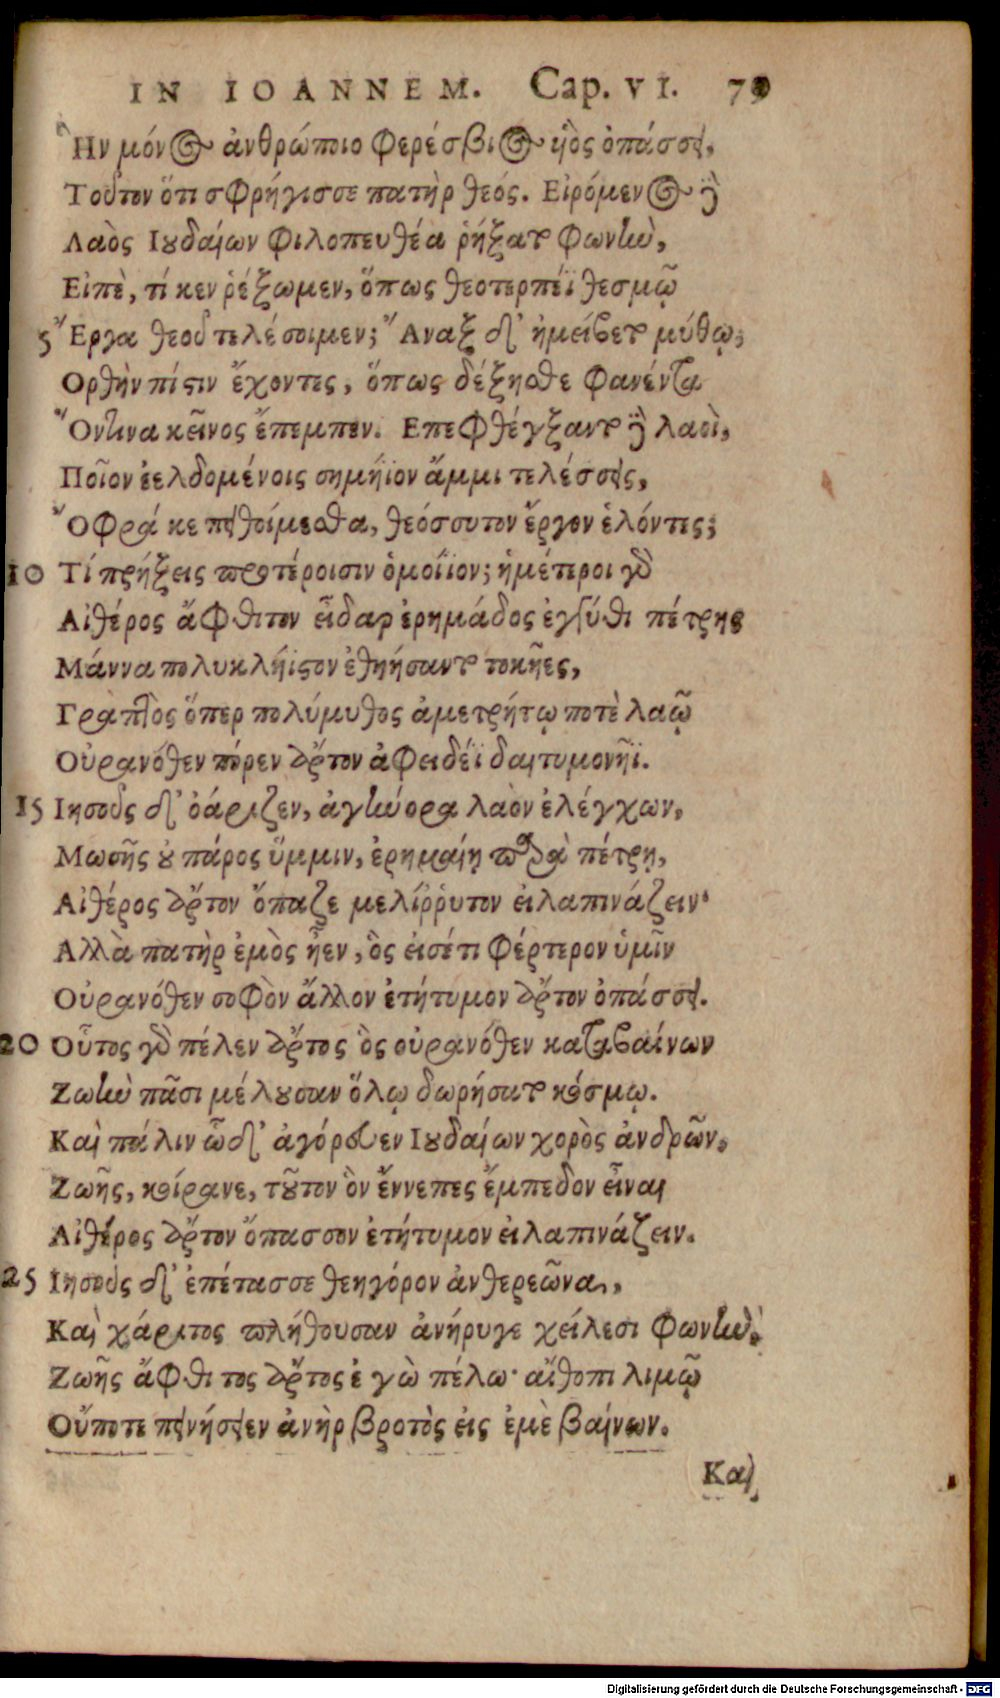 IN IOANNEM. Cap. VI. 79
Ἣν μόνος ἀνθρώποιο φερέσβιος υἱὸς ὀπάσσει,
Τοῦτον ὅτι σφρήγισσε πατὴρ θεός. Εἰρόμενος δὲ
Λαὸς Ιουδαίων φιλοπευθέα ῥήξατο φωνὴν,
Εἰπὲ, τί κεν ῥέξωμεν, ὅπως θεοτερπέϊ θεσμῷ
5 Ἔργα θεοῦ τελέσοιμεν; Ἄναξ δ' ἠμείβετο μύθῳ;
Ορθὴν πίστιν ἔχοντες, ὅπως δέξησθε φανέντα
Ὅντινα κεῖνος ἔπεμπεν. Επεφθέγξαντο δὲ λαοὶ,
Ποῖον ἐελδομένοις σημήϊον ἄμμι τελέσσεις,
Ὄφρά κε πειθοίμεσθα, θεόσσυτον ἔργον ἑλόντες;
10 Τί πρήξεις προτέροισιν ὁμοίϊον; ἡμέτεροι γὰρ
Αἰθέρος ἄφθιτον εἶδαρ ἐρημάδος ἐγγύθι πέτρης
Μάννα πολυκλήϊστον ἐθηήσαντο τοκῆες,
Γραπτὸς ὅπερ πολύμυθος ἀμετρήτῳ ποτὲ λαῷ
Οὐρανόθεν πόρεν ἄρτον ἀφειδέϊ δαιτυμονῆϊ.
15 Ιησοῦς δ' ὀάριζεν, ἀγήνορα λαὸν ἐλέγχων,
Μωσῆς οὐ πάρος ὔμμιν, ἐρημαίῃ παρὰ πέτρῃ,
Αἰθέρος ἄρτον ὄπαζε μελίῤῥυτον εἰλαπινάζειν·
Αλλὰ πατὴρ ἐμὸς ἦεν, ὃς εἰσέτι φέρτερον ὑμῖν
Οὐρανόθεν σοφὸν ἄλλον ἐτήτυμον ἄρτον ὀπάσσει.
20 Οὗτος γὰρ πέλεν ἄρτος ὃς οὐρανόθεν καταβαίνων
Ζωὴν πᾶσι μέλουσαν ὅλῳ δωρήσατο κόσμῳ.
Καὶ πάλιν ὧδ' ἀγόρευεν Ιουδαίων χορὸς ἀνδρῶν,
Ζωῆς, κοίρανε, τοῦτον ὃν ἔννεπες ἔμπεδον εἶναι
Αἰθέρος ἄρτον ὄπασσον ἐτήτυμον εἰλαπινάζειν.
25 Ιησοῦς δ' ἐπέτασσε θεηγόρον ἀνθερεῶνα,
Καὶ χάριτος πλήθουσαν ἀνήρυγε χείλεσι φωνὴν,
Ζωῆς ἄφθιτος ἄρτος ἐγὼ πέλω· αἴθοπι λιμῷ
Οὔποτε πεινήσειεν ἀνὴρ βροτὸς εἰς ἐμὲ βαίνων.
Καὶ
Digitalisierung gefördert durch die Deutsche Forschungsgemeinschaft - DFG